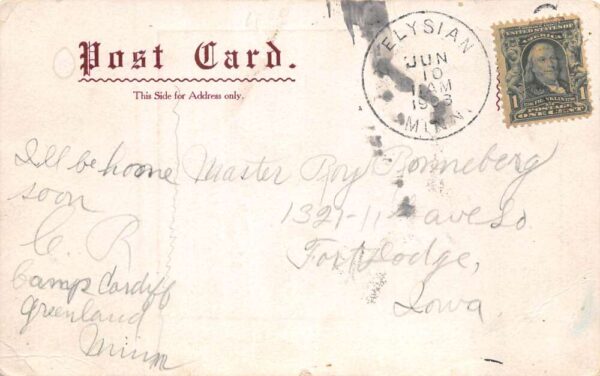 Post Card.
This Side for Address only.
ELYSIAN
JUN
10
AM
MINN.
UNITED STATES OF
AMERICA
1
FRANKLIN
1
POSTAGE
ONE CENT
I'll be home
soon
C. R
Camp Cardiff
Greenland
Minn
Master Roy Ronneberg
1321-11 ave So
Fort Dodge,
Iowa